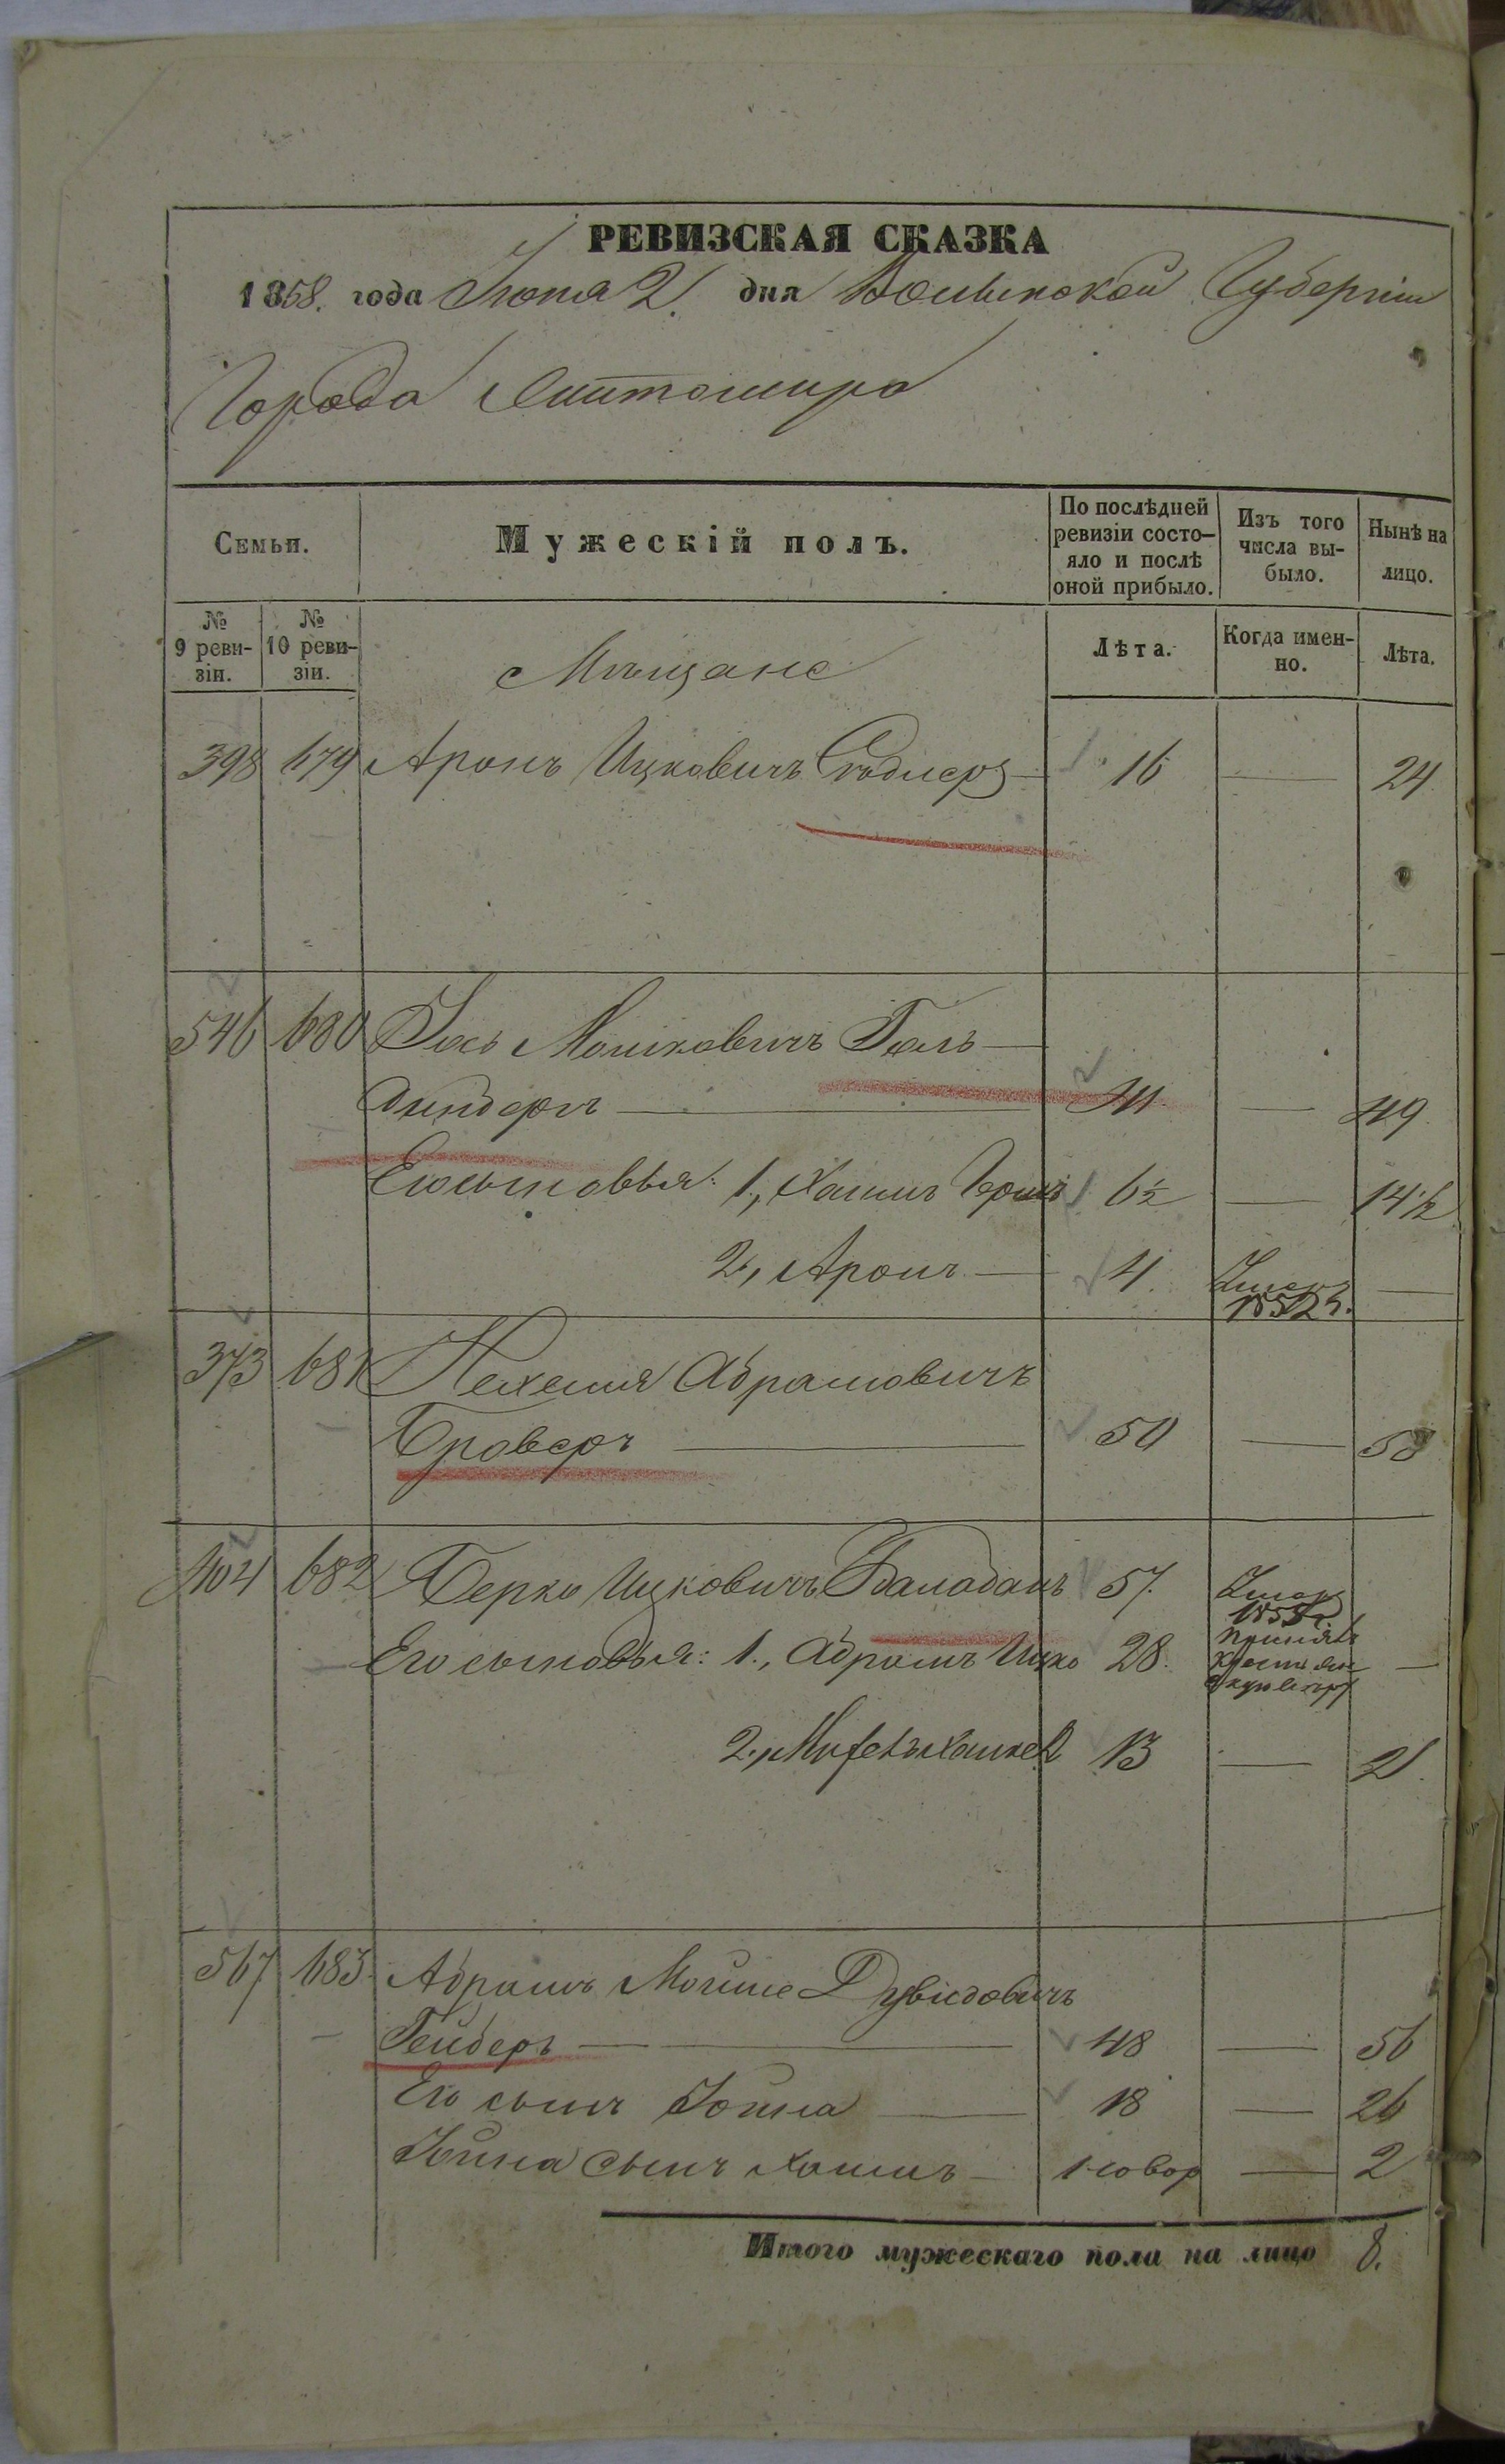 РЕВИЗСКАЯ СКАЗКА
1858. года Іюня 2. дня Волынской Губерніи
Города Житомира
Семьи.
Мужескій полъ.
По послѣдней ревизіи состо-яло и послѣ оной прибыло.
Изъ того числа вы-было.
Нынѣ на лицо.
№ 9 реви-зіи.
№ 10 реви-зіи.
Мѣщане
Лѣта.
Когда имен-но.
Лѣта.
398 679 Аронъ Ицковичъ — 16 — 24
546 680 Іось Мошковичъ Голь—
динберъ — 41 — 49
Его сыновья: 1, Хаимъ Гершъ 6½ — 14½
2, Аронъ — 4. Умеръ 1852 г. —
373 681 Нехемія Абрамовичъ
Броверъ — 50 — 58
404 682 Берко Ицковичъ Баладанъ 57. Умеръ
Его сыновья: 1., Абрамъ Ицко 28. принялъ —
2., 13 — 21.
567 683. Абрамъ Мойше Дувидовичъ
Гейберъ — 48 — 56
Его сынъ Іойна — 18 — 26
Іойна сынъ Хаимъ — новор — 2
Итого мужескаго пола на лицо 8.